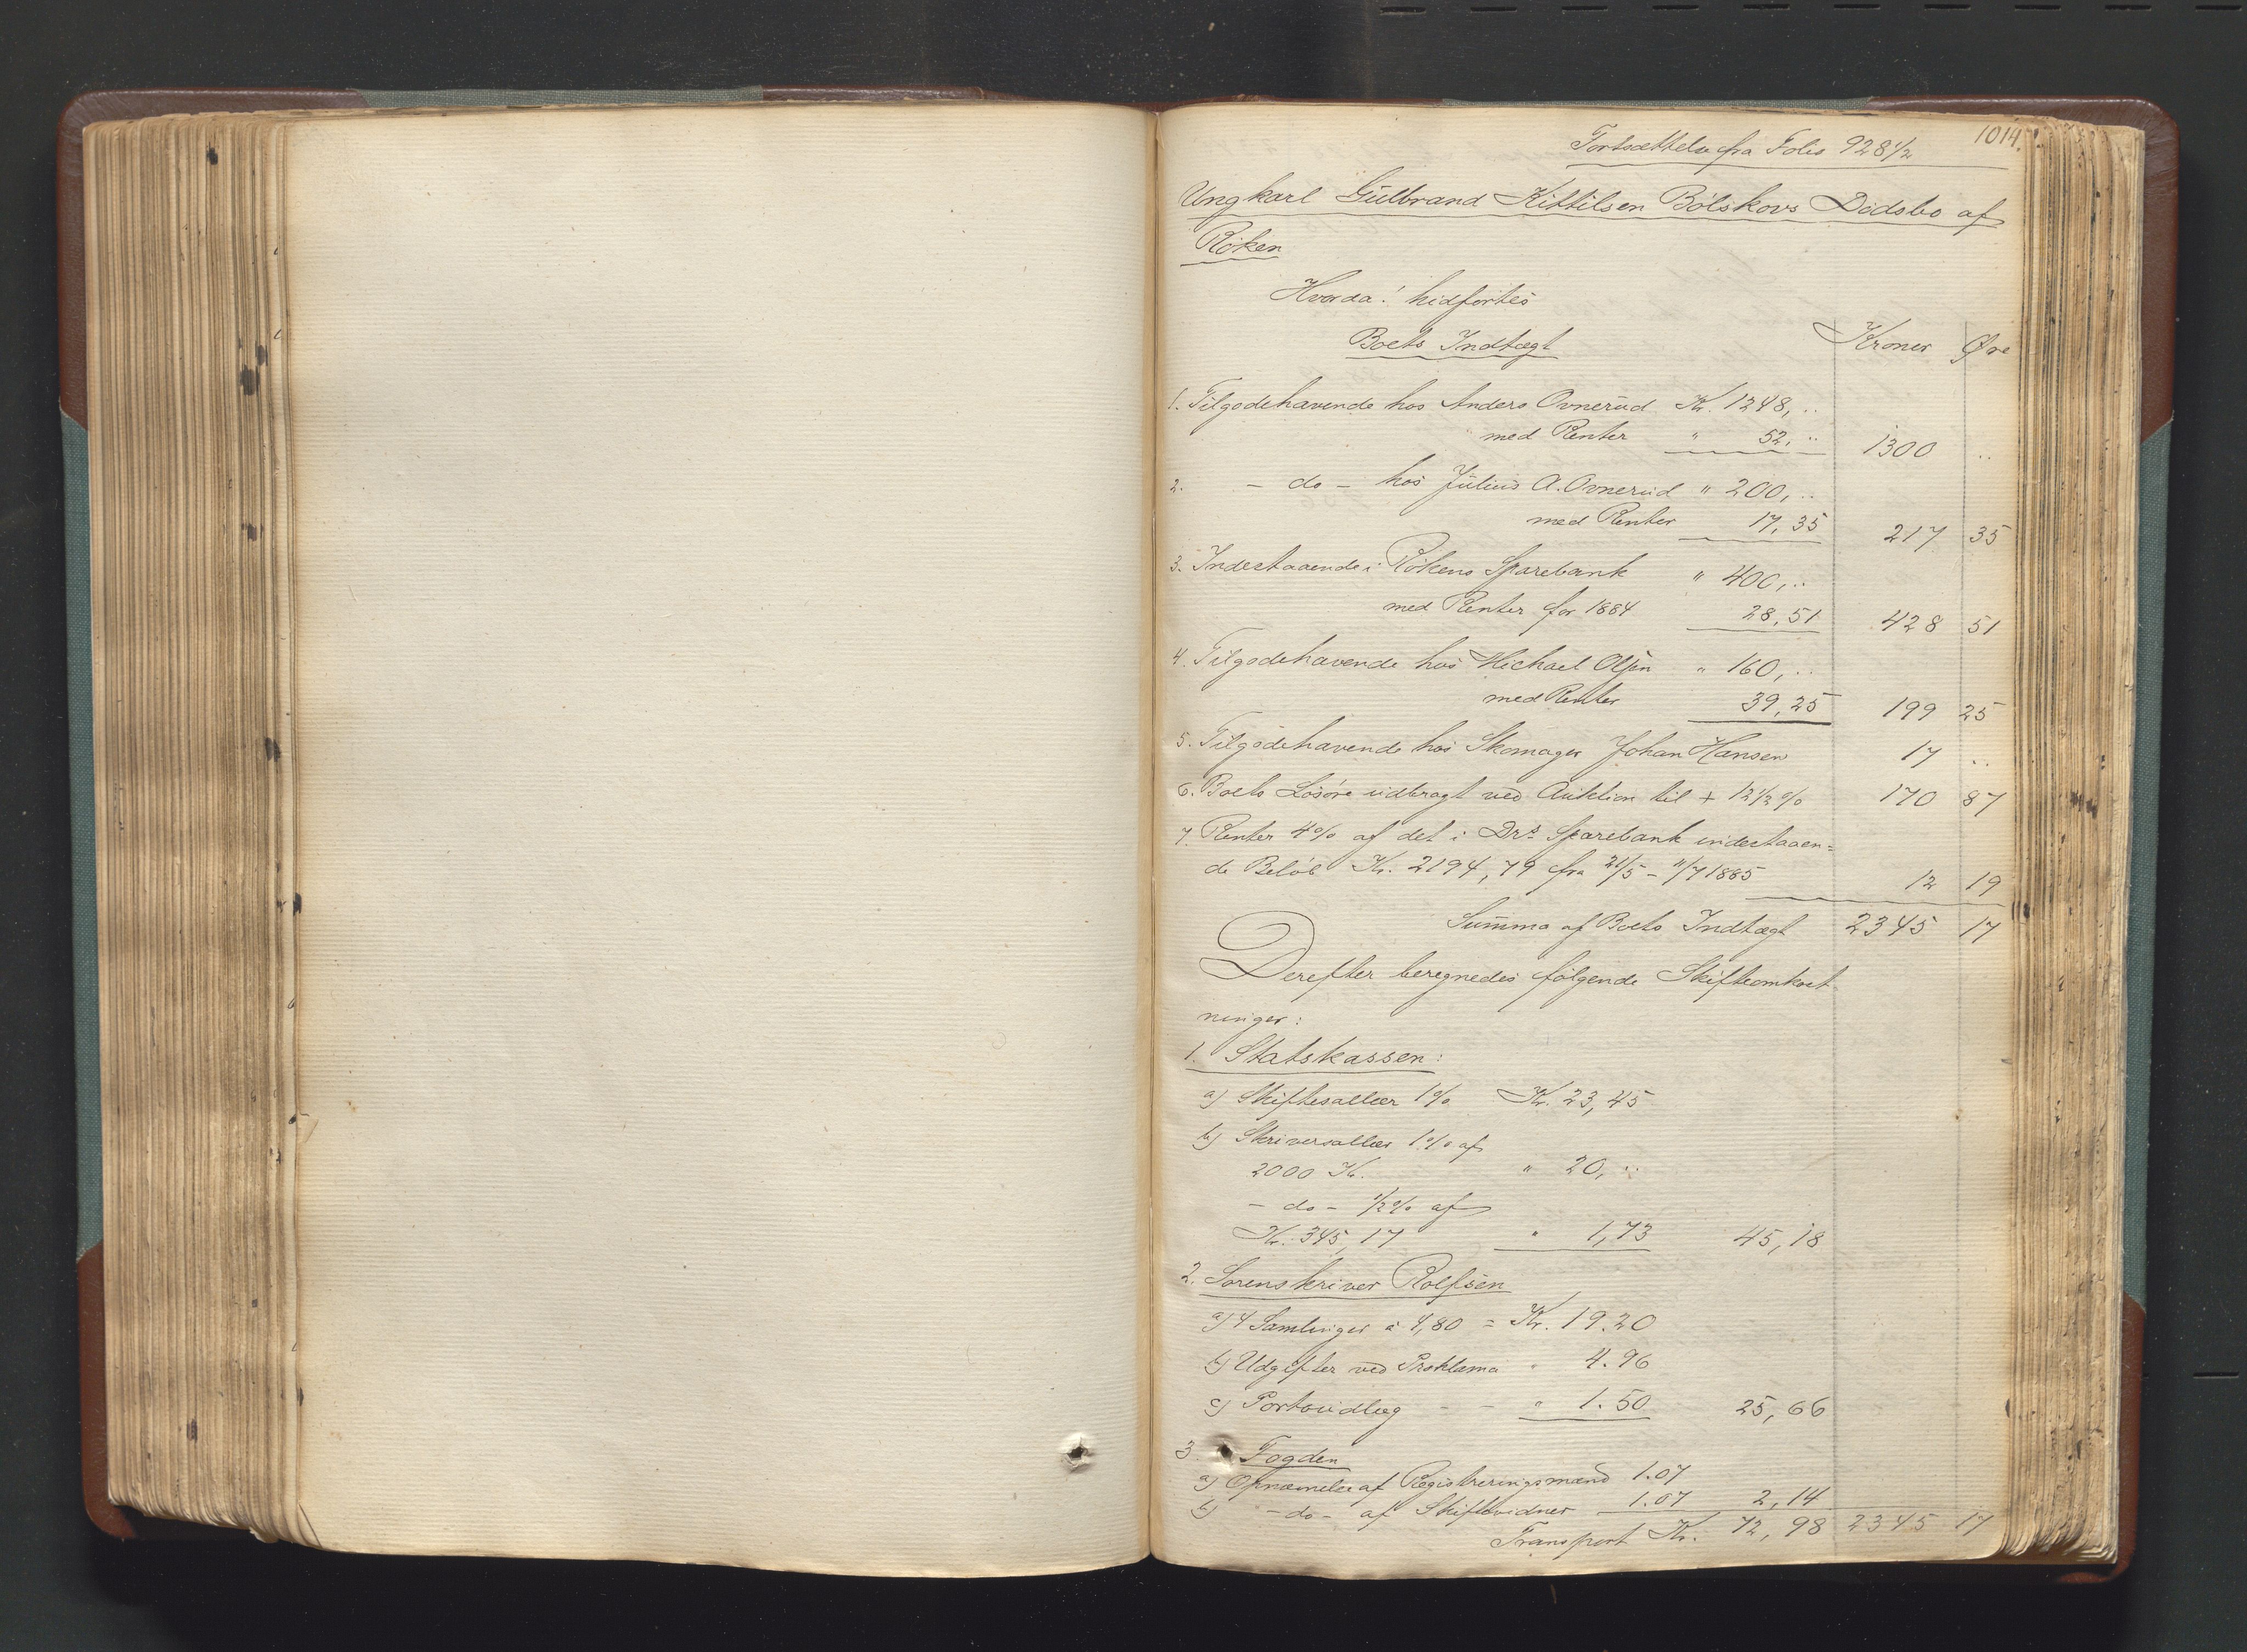 1014.
Fortsættelse fra Folio 928 1/2
Ungkarl Gulbrand Kittilsen Bölskovs Dödsbo af
Röken
Hvorda! hidførtes
Boets Indtægt Kroner Øre
1. Tilgodehavende hos Anders Ovnerud Kr. 1248, ..
med Renter " 52, .. 1300 ..
2. - do - hos Julius A. Ovnerud " 200, ..
med Renter 17,35 217 35
3. Indestaaende i Rökens Sparebank " 400, ..
med Renter for 1884 28,51 428 51
4. Tilgodehavende hos Michael Olsen " 160, ..
med Renter 39,25 199 25
5. Tilgodehavende hos Skomager Johan Hansen 17 ..
6. Boets Lösöre udbragt ved Auktion til + 12 1/2 % 170 87
7. Renter 4% af det i Drs Sparebank indestaaen=
de Belöb Kr. 2194,79 fra 21/5 - 11/7 1885 12 19
Summa af Boets Indtægt 2345 17
Derefter beregnedes fölgende Skifteomkost-
ninger:
1. Statskassen:
a) Skiftesallær 1% Kr. 23,45
b) Skriversallær 1% af
2000 Kr. " 20, ..
- do - 1/2% af
Kr. 345,17 " 1,73 45,18
2. Sorenskriver Rolfsen
a) 4 Samlinger á 4,80 = Kr. 19.20
b) Udgifter ved Proklama " 4.96
c) Portoudlæg - - " 1.50 25,66
3. Fogden
a) Opnævnelse af Registreringsmænd 1.07
b) - do - af Skiftevidner 1.07 2,14
Transport Kr. 72,98 2345 17